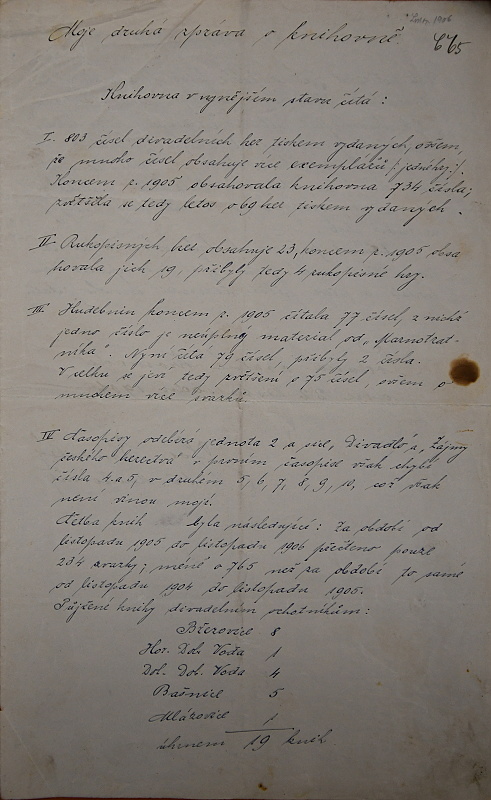 Moje druhá zpráva o knihovně.
665
Knihovna v nynějším stavu čítá:
I. 803 čísel divadelních her tiskem vydaných, ovšem,
že mnoho čísel obsahuje více exemplářů /: jedné hry:/.
Koncem r. 1905 obsahovala knihovna 734 čísla;
zvětšila se tedy letos o 69 her tiskem vydaných.
II Rukopisných her obsahuje 23, koncem r. 1905 obsa
hovala jich 19, přibyly tedy 4 rukopisné hry.
III. Hudebnin koncem r. 1905 čítala 77 čísel, z nichž
jedno číslo je neúplný materiál od „Marnotrat-
níka". Nyní čítá 79 čísel, přibyly 2 čísla.
V celku se jeví tedy zvětšení o 75 čísel, ovšem o
mnohem více svazků.
IV Časopisy odebírá jednota 2 a sice „Divadlo" a „Zájmy
českého herectva" v prvním časopise však chybí
čísla 4. a 5, v druhém 5, 6, 7, 8, 9, 10, což však
není vinou mojí.
Četba knih byla následující: Za období od
listopadu 1905 do listopadu 1906 přečteno pouze
234 svazky; méně o 765 než za období to samé
od listopadu 1904 do listopadu 1905.
Půjčené knihy divadelním ochotníkům:
Březovice 8
Hor. Dob. Voda 1
Dol. Dob. Voda 4
Bašnice 5
Mlázovice 1
úhrnem 19 knih.